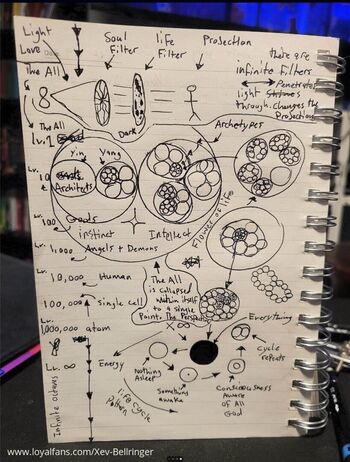 Light
Love
Soul
Filter
life
Filter
Projection
there are
infinite filters
Penetrates
light Shines
through, changes the
Projections
The All
&
8
Dark
The All
Lv. 1
Archetypes
Yin
Yang
Lv. 10
Architects
Lv. 100
Gods
instinct
Intellect
Flower of life
Lv. 1,000
Angels + Demons
Lv. 10,000
Human
The All
is collapsed
Within itself
to a single
Point. The
Lv. 100,000
Single Cell
Lv. 1,000,000
atom
X ∞
Everything
cycle
repeats
Lv. ∞
Energy
Nothing
Asleep
Something
awake
Consciousness
Aware
of All
God
life cycle
Pattern
Infinite octaves
www.loyalfans.com/Xev-Bellringer